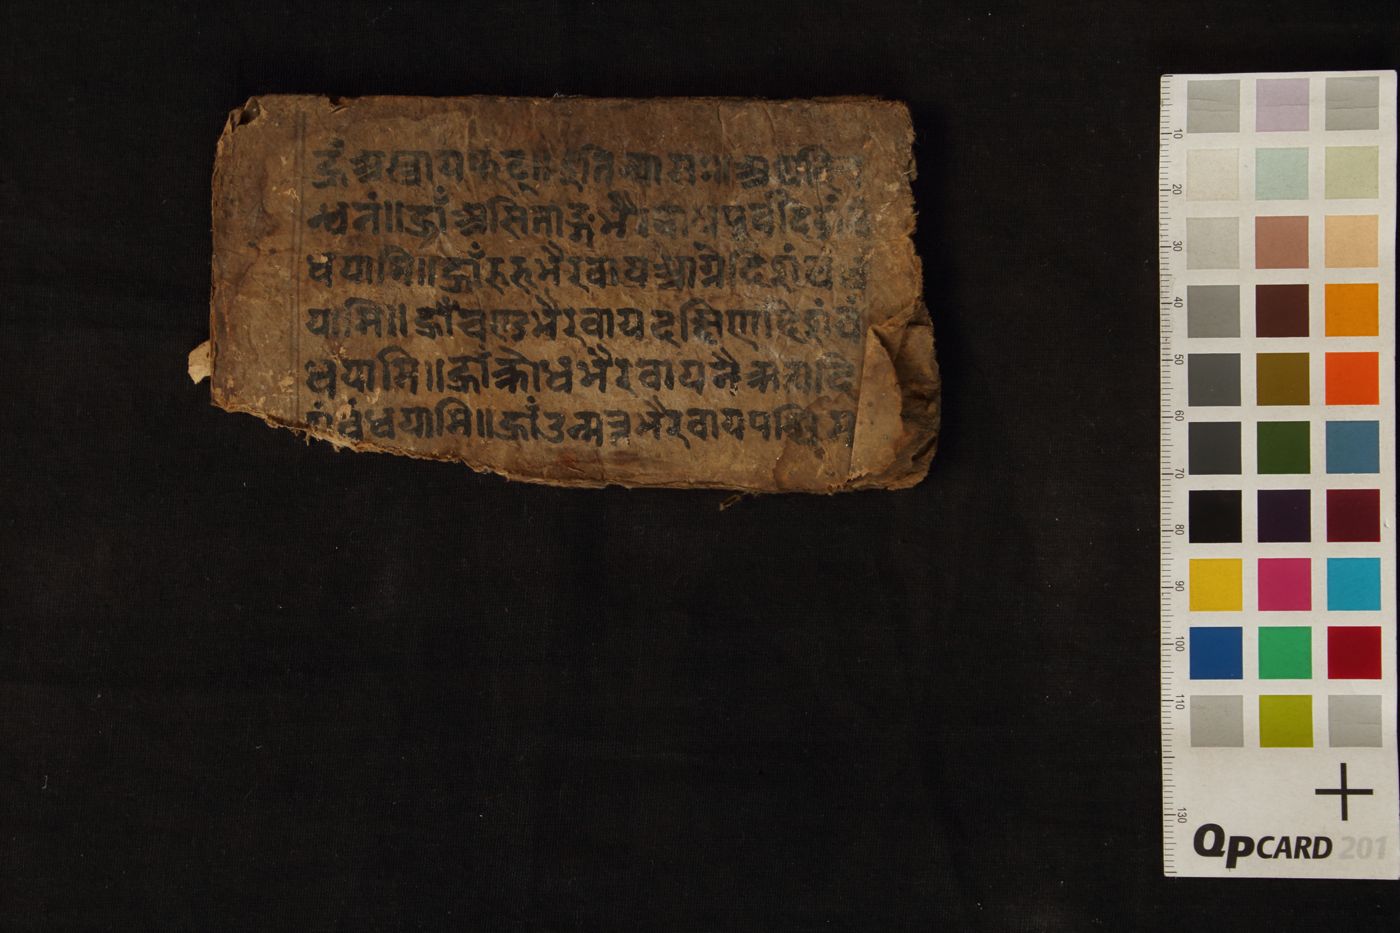 ह्रं अस्त्राय फट्॥इति न्यासः॥
न्धनं॥ह्राँ असिताङ्गभैरवाय पूर्वदिशं
धयामि॥ह्राँ रुरुभैरवाय आग्नेदिशं
यामि॥ह्राँ चण्डभैरवाय दक्षिणदिशं वं
धयामि॥ह्रां क्रोधभैरवाय नैऋत्यदि
शं वंधयामि॥ह्रां उन्मत्तभैरवाय पश्चि
10
20
30
40
50
60
70
80
90
100
110
130
QPCARD 201